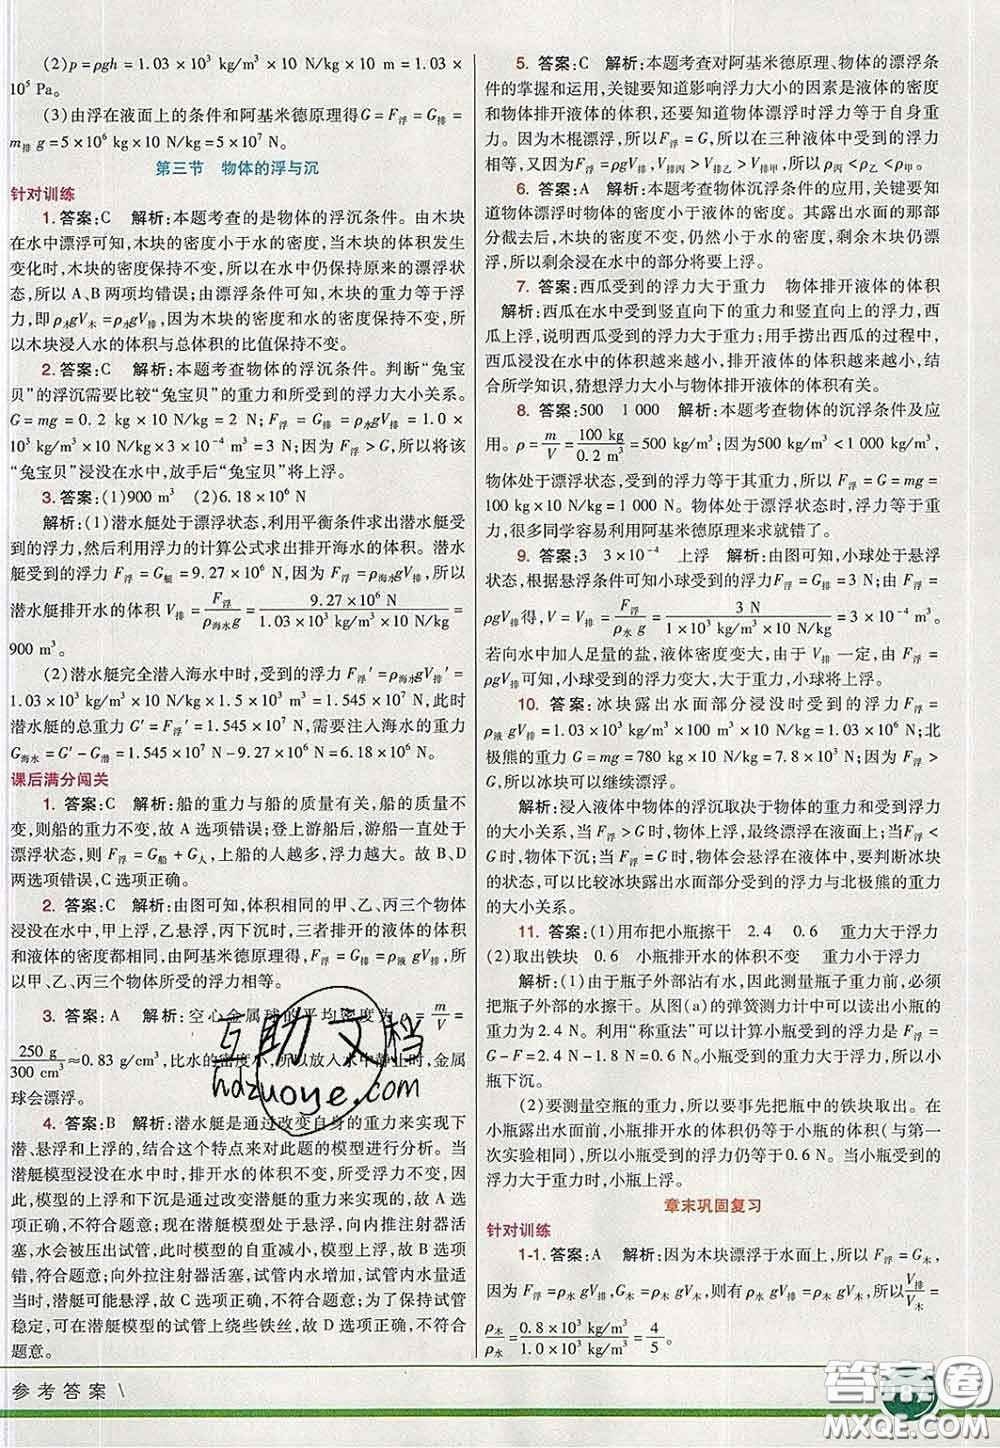 (2) p = ρgh = 1.03 × 10³ kg/m³ × 10 N/kg × 10 m = 1.03 ×
10⁵ Pa.
(3)由浮在液面上的条件和阿基米德原理得 G = F浮 = G排 =
m排 g = 5 × 10⁶ kg × 10 N/kg = 5 × 10⁷ N。
第三节 物体的浮与沉
针对训练
1. 答案:C 解析:本题考查的是物体的浮沉条件。由木块
在水中漂浮可知,木块的密度小于水的密度,当木块的体积发生
变化时,木块的密度保持不变,所以在水中仍保持原来的漂浮状
态,所以 A、B 两项均错误;由漂浮条件可知,木块的重力等于浮
力,即 ρ木gV木 = ρ水gV排,因为木块和水的密度均保持不变,所
以木块浸入水的体积与总体积的比值保持不变。
2. 答案:C 解析:本题考查物体的浮沉条件。判断“兔宝
贝”的浮沉需要比较“兔宝贝”的重力与受到的浮力大小关系。
G = mg = 0.2 kg × 10 N/kg = 2 N; F浮 = G排 = ρ水gV排 = 1.0 ×
10³ kg/m³ × 10 N/kg × 3 × 10⁻⁴ m³ = 3 N;因为 F浮 > G,所以将该
“兔宝贝”浸没在水中,放手后“兔宝贝”将上浮。
3. 答案:(1)900 m³ (2)6.18 × 10⁶ N
解析:(1)潜水艇处于漂浮状态,利用平衡条件求出潜水艇受
到的浮力,然后利用浮力的计算公式求出排开海水的体积。潜水
艇受到的浮力 F浮 = G艇 = 9.27 × 10⁶ N,因为 F浮 = ρ海水gV排,所以
潜水艇排开水的体积 V排 = F浮/(ρ海水g) = 9.27 × 10⁶ N/(1.03 × 10³ kg/m³ × 10 N/kg) =
900 m³。
(2)潜水艇完全潜入海水中时,受到的浮力 F浮′ = ρ海水gV排′ =
1.03 × 10³ kg/m³ × 10 N/kg × 1.5 × 10³ m³ = 1.545 × 10⁷ N,此时
潜水艇的总重力 G′ = F浮′ = 1.545 × 10⁷ N,需要注入海水的重力
G海水 = G′ - G潜 = 1.545 × 10⁷ N - 9.27 × 10⁶ N = 6.18 × 10⁶ N。
课后满分闯关
1. 答案:C 解析:船的重力与船的质量有关,船的质量不
变,则船的重力不变,故 A 选项错误;登上游船后,游船一直处于
漂浮状态,则 F浮 = G船 + G人,上船的人越多,浮力越大。故 B、D
两选项错误,C 选项正确。
2. 答案:C 解析:由图可知,体积相同的甲、乙、丙三个物体
浸没在水中,甲上浮,乙悬浮,丙下沉时,三者排开的液体的体积
和液体的密度都相同,由阿基米德原理 F浮 = G排 = ρ液 gV排 可知,
所以甲、乙、丙三个物体所受的浮力相等。
3. 答案:A 解析:空心金属球的平均密度为 ρ = m/V =
250 g/300 cm³ ≈ 0.83 g/cm³,比水的密度小,所以放入水中静止时,金属
球会漂浮。
4. 答案:B 解析:潜水艇是通过改变自身的重力来实现下
潜、悬浮和上浮的,结合这个特点来对此题的模型进行分析。当
潜艇模型浸没在水中时,排开水的体积不变,所受浮力不变,因
此,模型的上浮和下沉是通过改变潜艇的重力来实现的,故 A 选
项正确,不符合题意;现在潜艇模型处于悬浮,向内推注射器活
塞,水会被压出试管,此时模型的自重减小,模型上浮,故 B 选项错
误,符合题意;向外拉注射器活塞,试管内水增加,模型自重增加,适
当时,潜艇可能悬浮,故 C 选项正确,不符合题意;为了保持试管
稳定,可在潜艇模型的试管上绕些铁丝,故 D 选项正确,不符合
题意。
参考答案 \
5. 答案:C 解析:本题考查对阿基米德原理、物体的漂浮条
件的掌握和运用,关键要知道影响浮力大小的因素是液体的密度
和物体排开液体的体积,还要知道物体漂浮时浮力等于自身重
力。因为木棍漂浮,所以 F浮 = G,所以在三种液体中受到的浮力
相等,又因为 F浮 = ρgV排,V排丙 > V排乙 > V排甲,所以 ρ丙 < ρ乙 < ρ甲。
6. 答案:A 解析:本题考查物体沉浮条件的应用,关键要知
道物体漂浮时物体的密度小于液体的密度。其露出水面的那部
分截去后,木头的密度不变,仍然小于水的密度,剩余木头仍漂
浮,所以剩余浸在水中的部分将要上浮。
7. 答案:西瓜受到的浮力大于重力 物体排开液体的体积
解析:西瓜在水中受到竖直向下的重力和竖直向上的浮力,西
瓜上浮,说明西瓜受到的浮力大于重力;用手捞出西瓜的过程中,
西瓜浸没在水中的体积越来越小,排开液体的体积越来越小,结
合所学知识,猜想浮力大小与物体排开液体的体积有关。
8. 答案:500 1 000 解析:本题考查物体的沉浮条件及应
用。ρ = m/V = 100 kg/0.2 m³ = 500 kg/m³;因为500 kg/m³ < 1 000 kg/m³,
物体处于漂浮状态,受到的浮力等于其重力,所以 F浮 = G = mg =
100 kg × 10 N/kg = 1 000 N。物体处于漂浮状态时,浮力等于重
力,很多同学容易利用阿基米德原理来求就错了。
9. 答案:3 3 × 10⁻⁴ 上浮 解析:由图可知,小球处于悬浮
状态,根据悬浮条件可知小球受到的浮力 F浮 = G排 = 3 N;由 F浮 =
ρgV排得,V = V排 = F浮/(ρ水 g) = 3 N/(1 × 10³ kg/m³ × 10 N/kg) = 3 × 10⁻⁴ m³。
若向水中加入足量的盐,液体密度变大,由于 V排 一定,由 F浮 =
ρgV排可知,小球受到的浮力变大,小球将上浮。
10. 答案:冰块露出水面部分浸没时受到的浮力 F浮 =
ρ液 gV排 = 1.03 × 10³ kg/m³ × 10 N/kg × 100 m³ = 1.03 × 10⁶ N;北
极熊的重力 G = mg = 780 kg × 10 N/kg = 7.8 × 10³ N;因为 F浮 >
G,所以冰块可以继续漂浮。
解析:浸入液体中物体的浮沉取决于物体的重力和受到浮力
的大小关系,当 F浮 > G 时,物体上浮,最终漂浮在液面上;当 F浮 <
G时,物体下沉;当 F浮 = G时,物体会悬浮在液体中,要判断冰块
的状态,可以比较冰块露出水面部分受到的浮力与北极熊的重力
的大小关系。
11. 答案:(1)用布把小瓶擦干 2.4 0.6 重力大于浮力
(2)取出铁块 小瓶排开水的体积不变 重力小于浮力
解析:(1)由于瓶子外部沾有水,因此测量瓶子重力前,必须
把瓶子外部的水擦干。从图(a)的弹簧测力计中可以读出小瓶的
重力为2.4 N。利用“称重法”可以计算小瓶受到的浮力为 F浮 =
G - F = 2.4 N - 1.8 N = 0.6 N。小瓶受到的重力大于浮力,所以小
瓶下沉。
(2)要测量空瓶的重力,所以要事先把瓶中的铁块取出。在
小瓶露出水面前,小瓶排开水的体积仍等于小瓶的体积(与第一
次实验相同),所以小瓶受到的浮力仍等于 0.6 N。小瓶受到的浮
力大于重力时,小瓶上浮。
章末巩固复习
针对训练
1-1. 答案:A 解析:因为木块漂浮于水面上,所以 F浮 = G木,
因为 F浮 = ρ水 gV排,G木 = ρ木 gV木,则有 ρ水 gV排 = ρ木 gV木,所以V排/V木 =
ρ木/ρ水 = 0.8 × 10³ kg/m³/1.0 × 10³ kg/m³ = 4/5。
互助文档
hdzuoye.com
答案圈
MXQE.COM